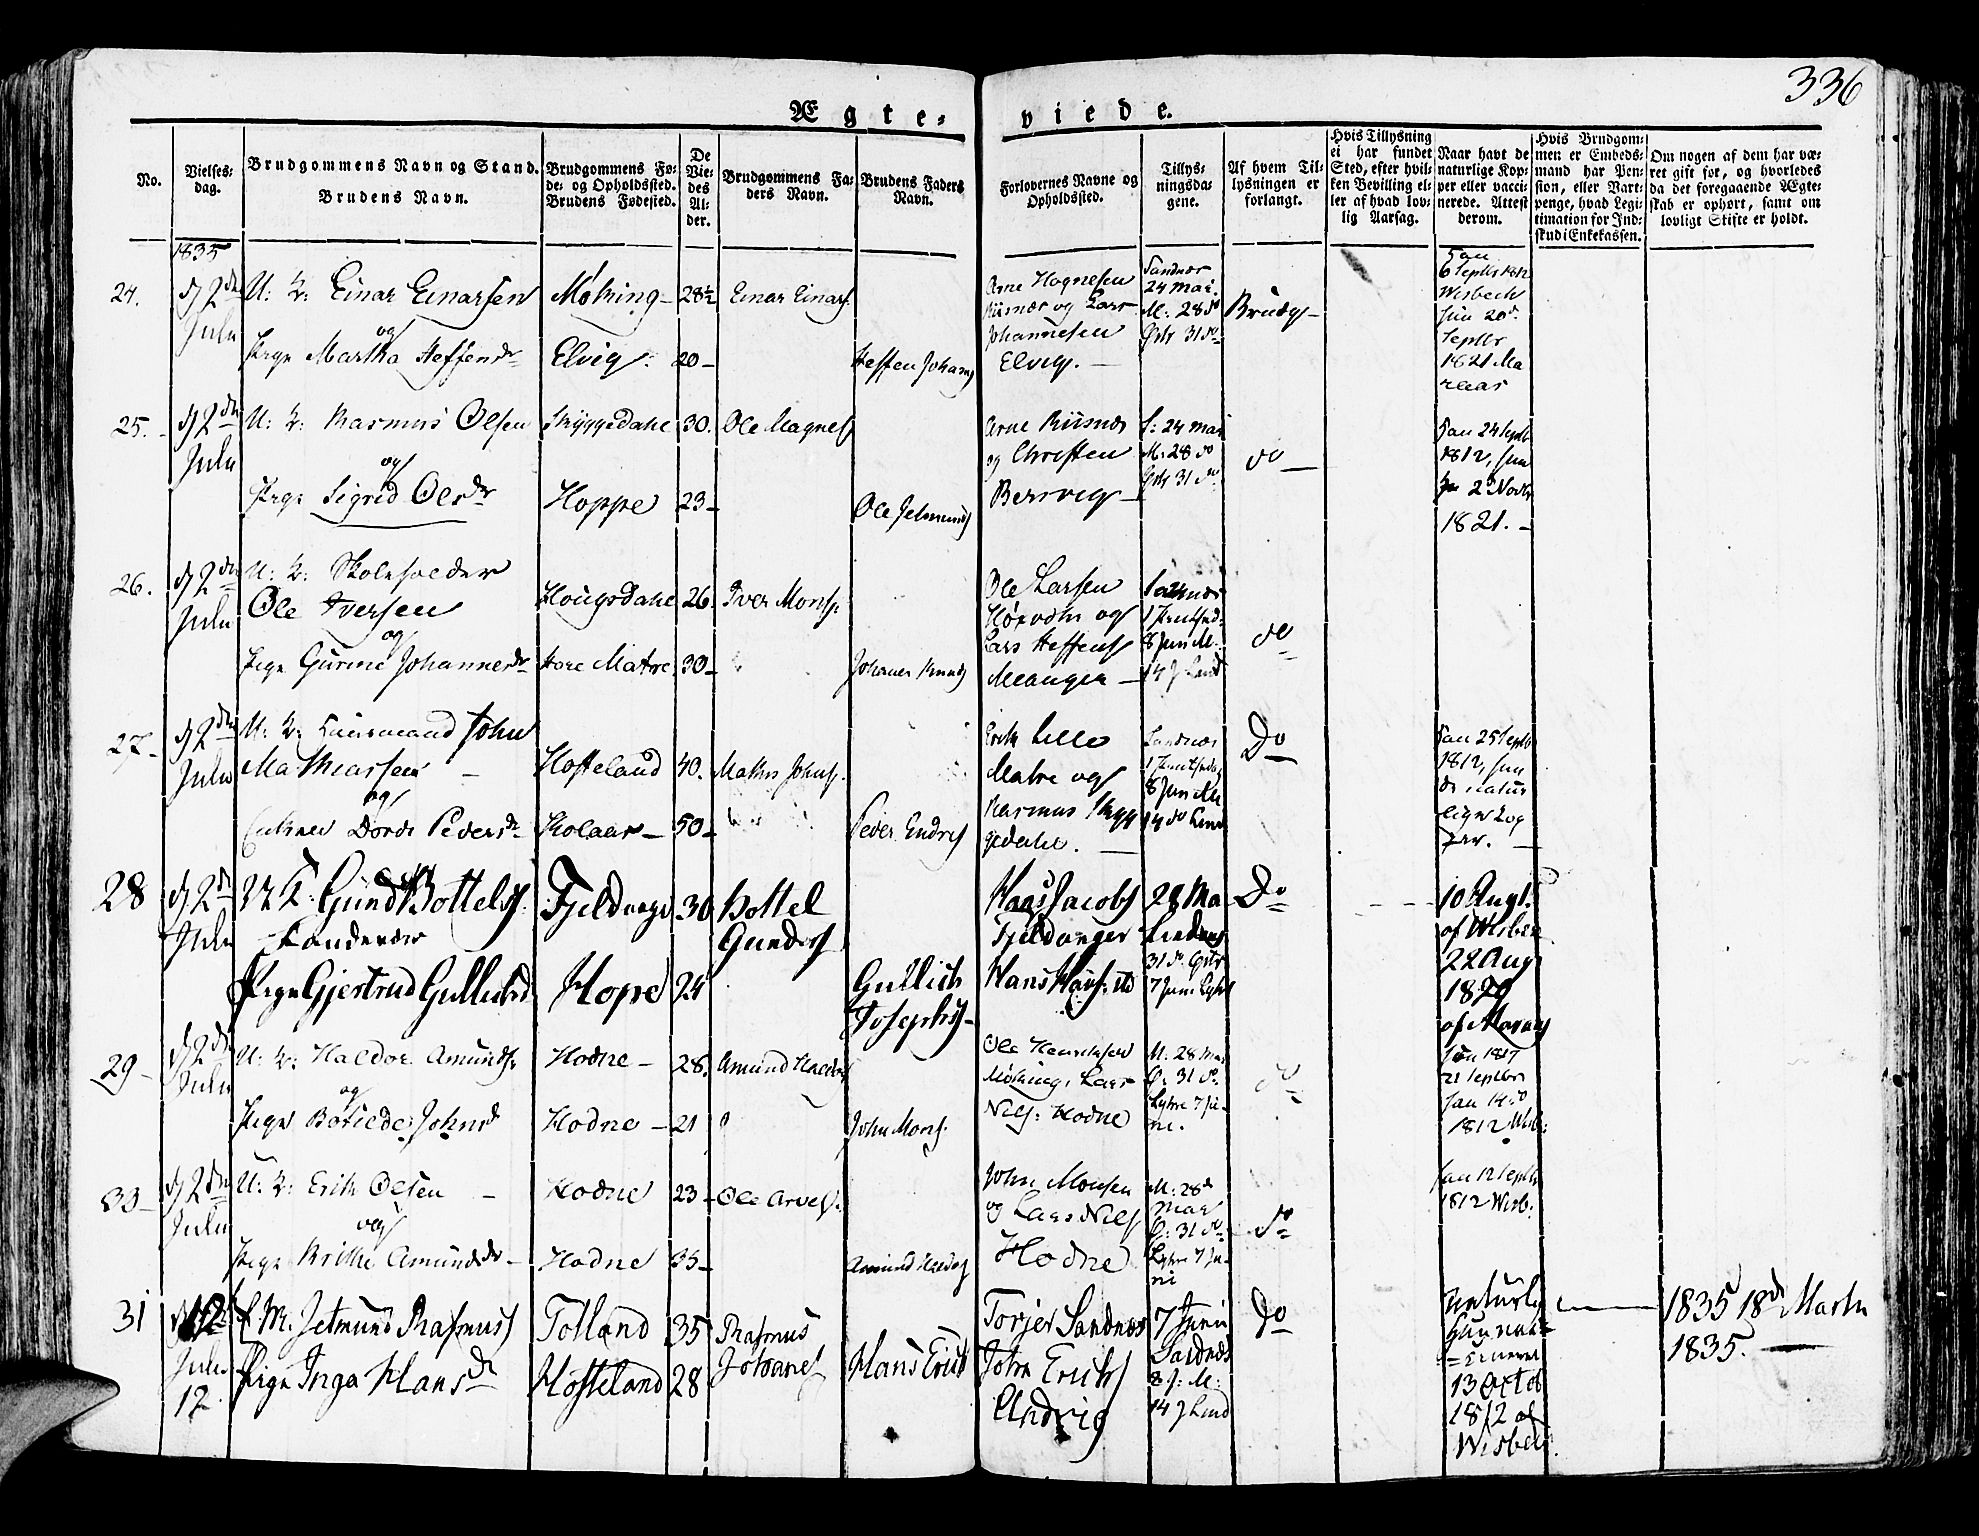 336
Ægte-viede.
No.
Vielses-
dag.
Brudgommens Navn og Stand.
Brudens Navn.
Brudgommens Fø-
de- og Opholdssted.
Brudens Fødested.
De
Vie-
des
Al-
der.
Brudgommens Fa-
ders Navn.
Brudens Faders
Navn.
Forlovernes Navne og
Opholdssted.
Tillys-
ningsda-
gene.
Af hvem Til-
lysningen er
forlangt.
Hvis Tillysning
ei har fundet
Sted, efter hvil-
ken Bevilling el-
ler af hvad lov-
lig Aarsag.
Naar havt de
naturlige Kop-
per eller vacci-
nerede. Attest
derom.
Hvis Brudgom-
men er Embeds-
mand har Pen-
sion, eller Vart-
penge, hvad Legi-
timation for Ind-
skud i Enkekassen.
Om nogen af dem har væ-
ret gift før, og hvorledes
da det foregaaende Ægte-
skab er ophørt, samt om
lovligt Skifte er holdt.
1835
24.
d 2den
Julii
U: K: Einar Einarsen
og
Pige Martha Steffensdr
Møkring
Elvig
28½
20
Einar Einars.
Steffen Johans
Arne Hognesen
Riisnær og Lars
Johannesen
Elvig.
Sandnær
24 Mai.
M: 28 do
Østr 31 do
Brudg
6 Septbr 1812
Wisbech
20de
Septbr
1821 Ma
25.
d 2den
Julii
U: K: Rasmus Olsen
og
Pige Sigrid Olsdr
Skyggedahl
Hoppe
30.
23
Ole Magnes
Ole Jetmunds
Arne Riisnær
og Christen
Beroveg
S: 24 Mai
M: 28 do
Østr 31 do
do
24 Septb
1812,
2 Novbr
1821.
26.
d 2den
Julii
U: K: Skoleholder
Ole Iversen
og
Pige Gurine Johannesdr
Hougsdahl
Matre
26.
30
Iver Mons.
Johannes Knuds
Ole Larsen
og
Lars Steffens
Meanger
Sandnær
8 Juni M.
14 J Lind
do
27
d 2den
Julii
U: K: John
Mathiassen
og
Enken Dorde Pedersdr
Hosteland
Kolaas
40.
50
Mathis Johns.
Peder Endres
Erik Lille
Matre og
Rasmus Skyg
gedahl.
Sandnær
8 Juni M
14 do Lind
Do
25 Septbr
1812,
de natur
lige Kop
per.
28
d 2dn
Julii
U K. Gund Bottels
Sandenær
Pige Gjertrud Gullichsd
Fjeldanger
Hope
30
24
Bottel
Gunders
Gullich
Josephs
Haas Jacobs
Fjeldanger
Hans
28 Ma
Lindaas
31 do Østr
7 Juni Lyhr
Do
10 Augt.
af Wisbec
22 Aug
29
d 2den
Julii
U: K: Haldor Amunds.
og
Pige Botilde Johnsd
Hodne
Hodne
28.
21
Amund Haldors
John Mons.
Ole Henriksen
Møkring, Lars
Nils: Hodne
M: 28 Mai
Ø: 31 do.
Lyhre 7 Ju-
ni.
do
21 Septbr
1812 Wisb:
30
d 2den
Julii
U: K: Erik Olsen
og
Pige Brithe Amundsdr
Hodne
Hodne
23
35
Ole Arves.
Amund Haldors
John Monsen
og Lars Nils
Hodne
M: 28d
Mai
Ø: 31 do
Lyhre 7 Ju-
ni
do
12 Septb
1812 Wisb:
31
12
Julii
12.
E M. Jetmund Rasmus
Pige Inga Hansdr
Totland
Hosteland
35
28
Rasmus
Johanes
Hans Erik
Torjer Sandnær
John Eriks
Endvig
7 Junii
Sandnæs
8 J: M:
14 J Lind
Do
naturlig
13 Octob
1812 af
Wisbech
1835 18de Martii
1835.